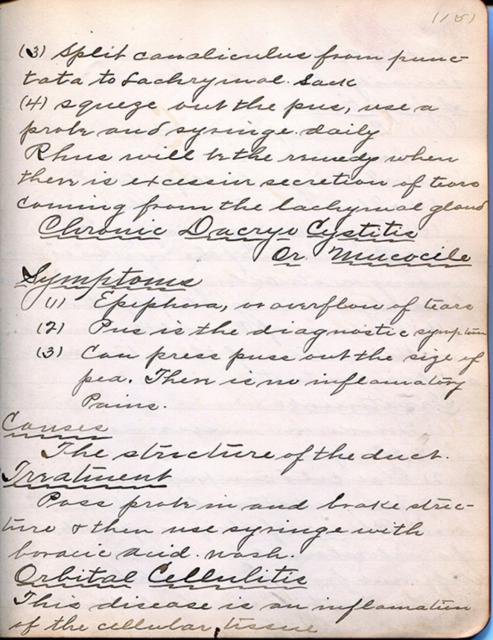 (15)
(3) Split canaliculus from punc-
tata to Lachrymal. Sack
(4) squeze out the pus, use a
probe and syringe. daily
Rhus will be the remedy when
there is excessive secretion of tears
coming from the lachrymal gland
Chronic Dacryo Cystitis
Or Mucocile
Symptoms
(1) Epephora, or overflow of tears
(2) Pus is the diagnostic symptom
(3) Can press puse out the size of
pea. There is no inflamatory
Pains.
Causes
The structure of the duct.
Treatment
Pass probe in and brake struc-
ture & then use syringe with
boracic acid. wash.
Orbital Cellulitis
This disease is an inflamation
of the cellular tissue